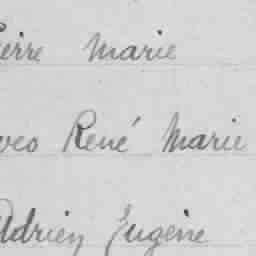 ierre Marie
ves René Marie
Adrien Eugène